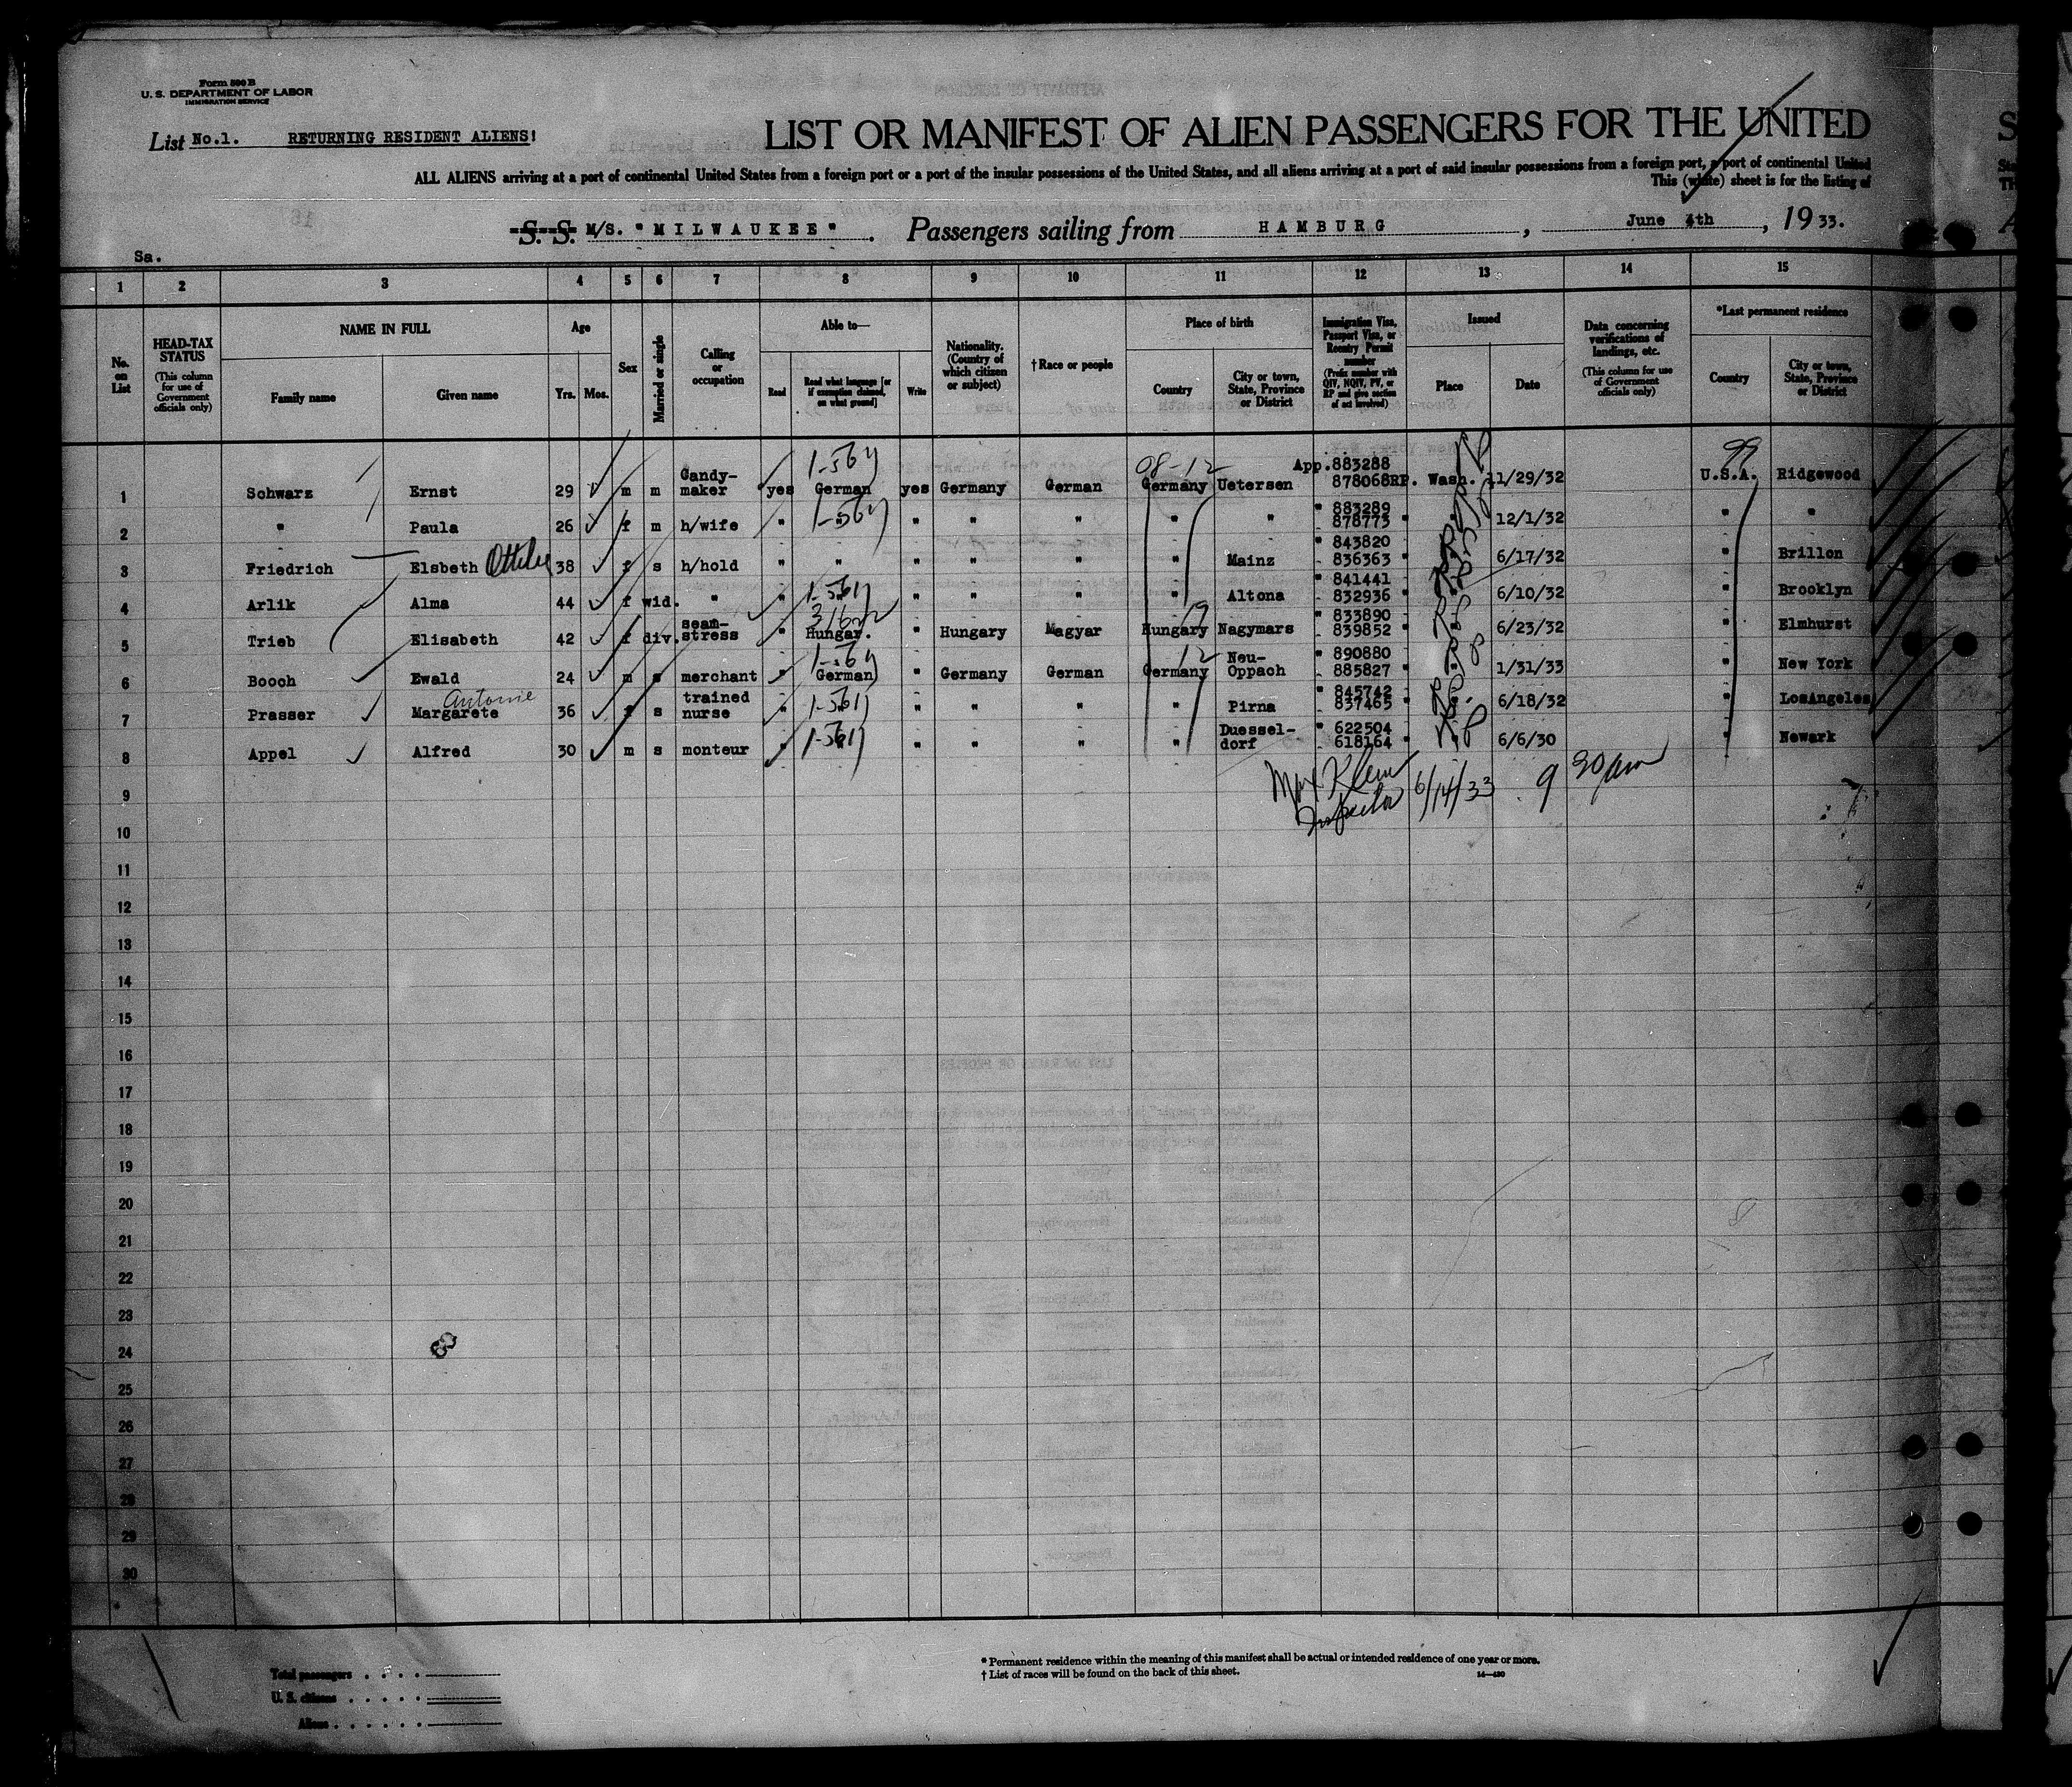 Form 500 B
U. S. DEPARTMENT OF LABOR
IMMIGRATION SERVICE
List No.1. RETURNING RESIDENT ALIENS!
LIST OR MANIFEST OF ALIEN PASSENGERS FOR THE UNITED
ALL ALIENS arriving at a port of continental United States from a foreign port or a port of the insular possessions of the United States, and all aliens arriving at a port of said insular possessions from a foreign port, a port of continental United
This (white) sheet is for the listing of
S. S. M/S. "MILWAUKEE". Passengers sailing from HAMBURG, June 4th, 1933.
Sa.
1 2 3 4 5 6 7 8 9 10 11 12 13 14 15
No. on List
HEAD-TAX STATUS (This column for use of Government officials only)
NAME IN FULL Family name Given name
Age Yrs. Mos.
Sex
Married or single
Calling or occupation
Able to— Read Read what language [or if exemption claimed, on what ground] Write
Nationality. (Country of which citizen or subject)
†Race or people
Place of birth Country City or town, State, Province or District
Immigration Visa, Passport Visa, or Reentry Permit number (Prefix number with QIV, NQIV, PV, or RP and give section of act involved)
Issued Place Date
Data concerning verifications of landings, etc. (This column for use of Government officials only)
*Last permanent residence Country City or town, State, Province or District
1 Schwarz Ernst 29 m m Candy-maker yes German yes Germany German Germany Uetersen App.883288 878068RP. Wash. 11/29/32 U.S.A. Ridgewood
1-564 08-12 99
2 " Paula 26 f m h/wife " " " " " " " " 883289 878773 " " 12/1/32 " "
1-564
3 Friedrich Elsbeth Ottilie 38 f s h/hold " " " " " " Mainz " 843820 836363 " " 6/17/32 " Brillon
4 Arlik Alma 44 f wid. " " " " " " " Altona " 841441 832936 " " 6/10/32 " Brooklyn
1-564
5 Trieb Elisabeth 42 f div. seam-stress " Hungar. " Hungary Magyar Hungary Nagymars " 833890 839852 " " 6/23/32 " Elmhurst
19
6 Booch Ewald 24 m s merchant " German " Germany German Germany Neu-Oppach " 890880 885827 " " 1/31/33 " New York
1-564 12
7 Prasser Antonie Margarete 36 f s trained nurse " " " " " " Pirna " 845742 837465 " " 6/18/32 " LosAngeles
1-564
8 Appel Alfred 30 m s monteur " " " " " " Duessel-dorf " 622504 618164 " " 6/6/30 " Newark
1-564
Max Klein Inspector 6/14/33 9 30 am
9
10
11
12
13
14
15
16
17
18
19
20
21
22
23
24
25
26
27
28
29
30
Total passengers
U. S. citizens
Aliens
* Permanent residence within the meaning of this manifest shall be actual or intended residence of one year or more.
† List of races will be found on the back of this sheet.
14—430